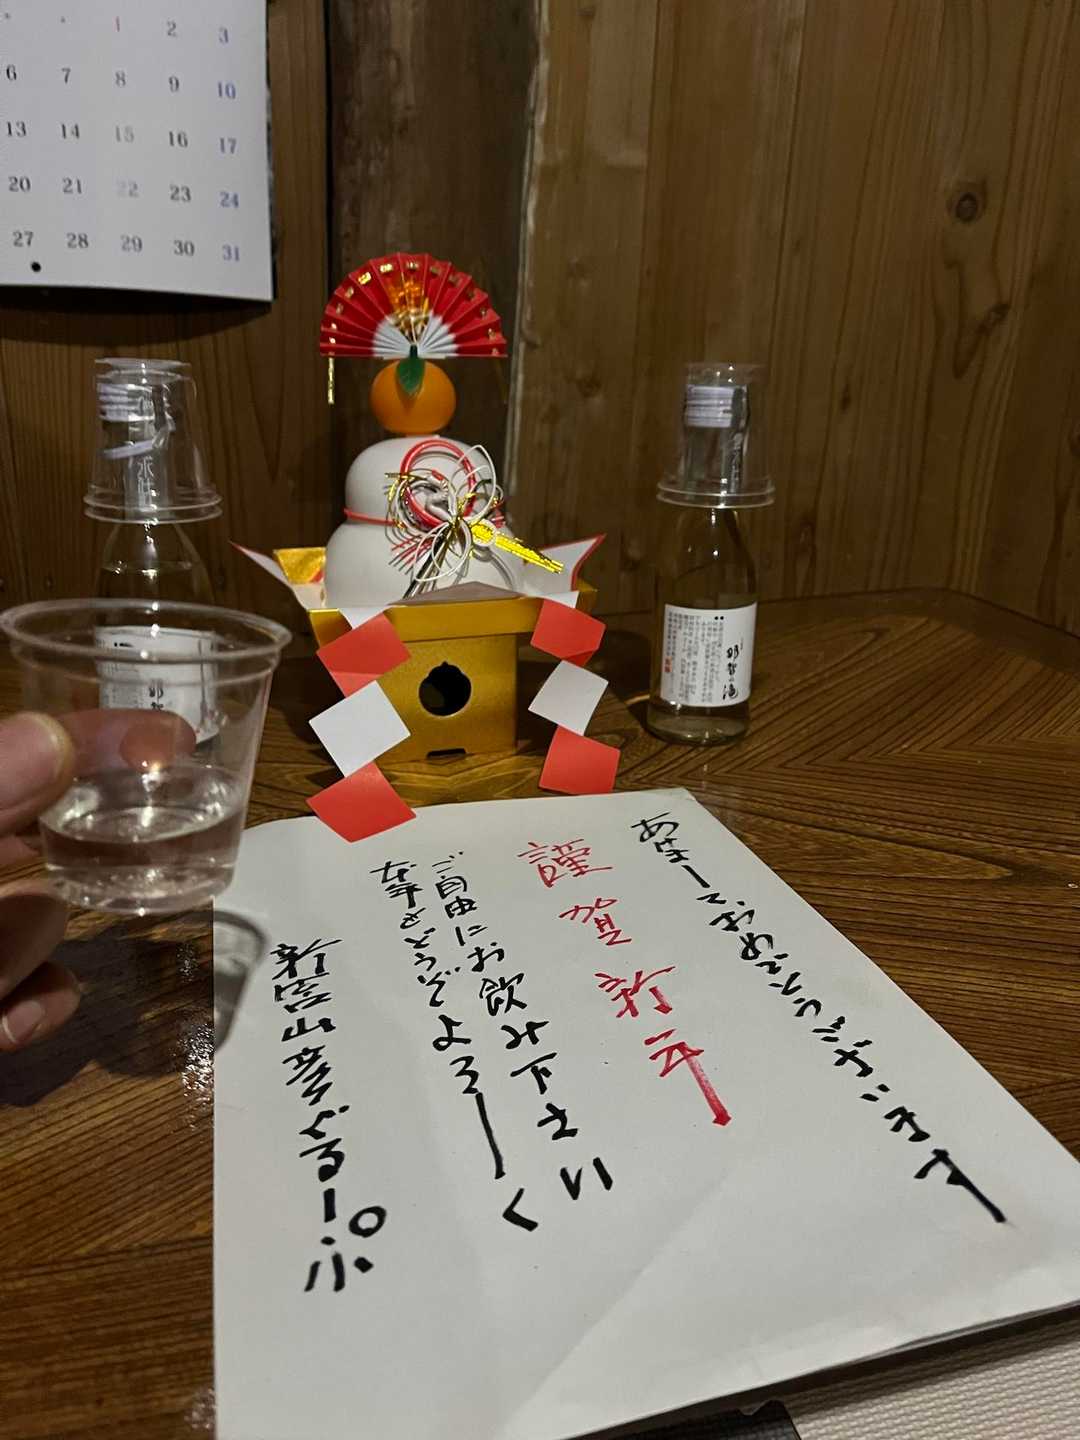 1 2 3
6 7 8 9 10
13 14 15 16 17
20 21 22 23 24
27 28 29 30 31
那智の滝
あけましておめでとうございます
謹賀新年
ご自由にお飲み下さい
本年もどうぞよろしく
新宮山彦ぐるーぷ